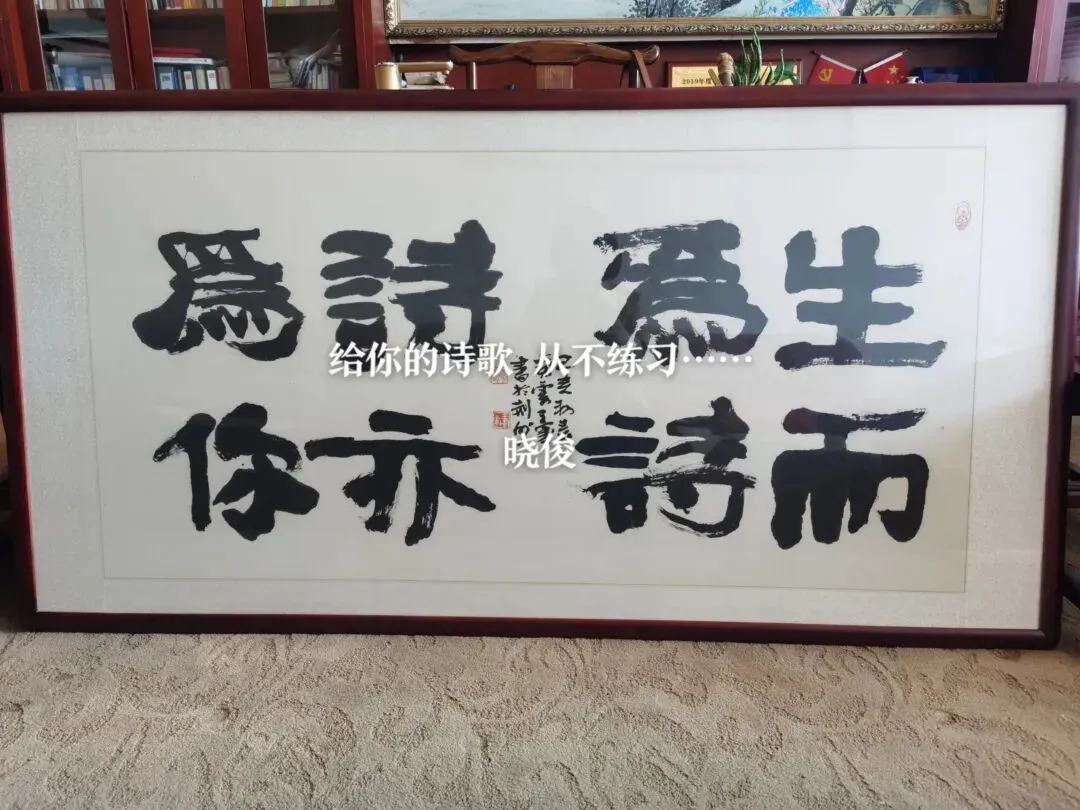 生而
為詩
詩亦
為你
書於
给你的诗歌 从不练习……
晓俊
2019年度